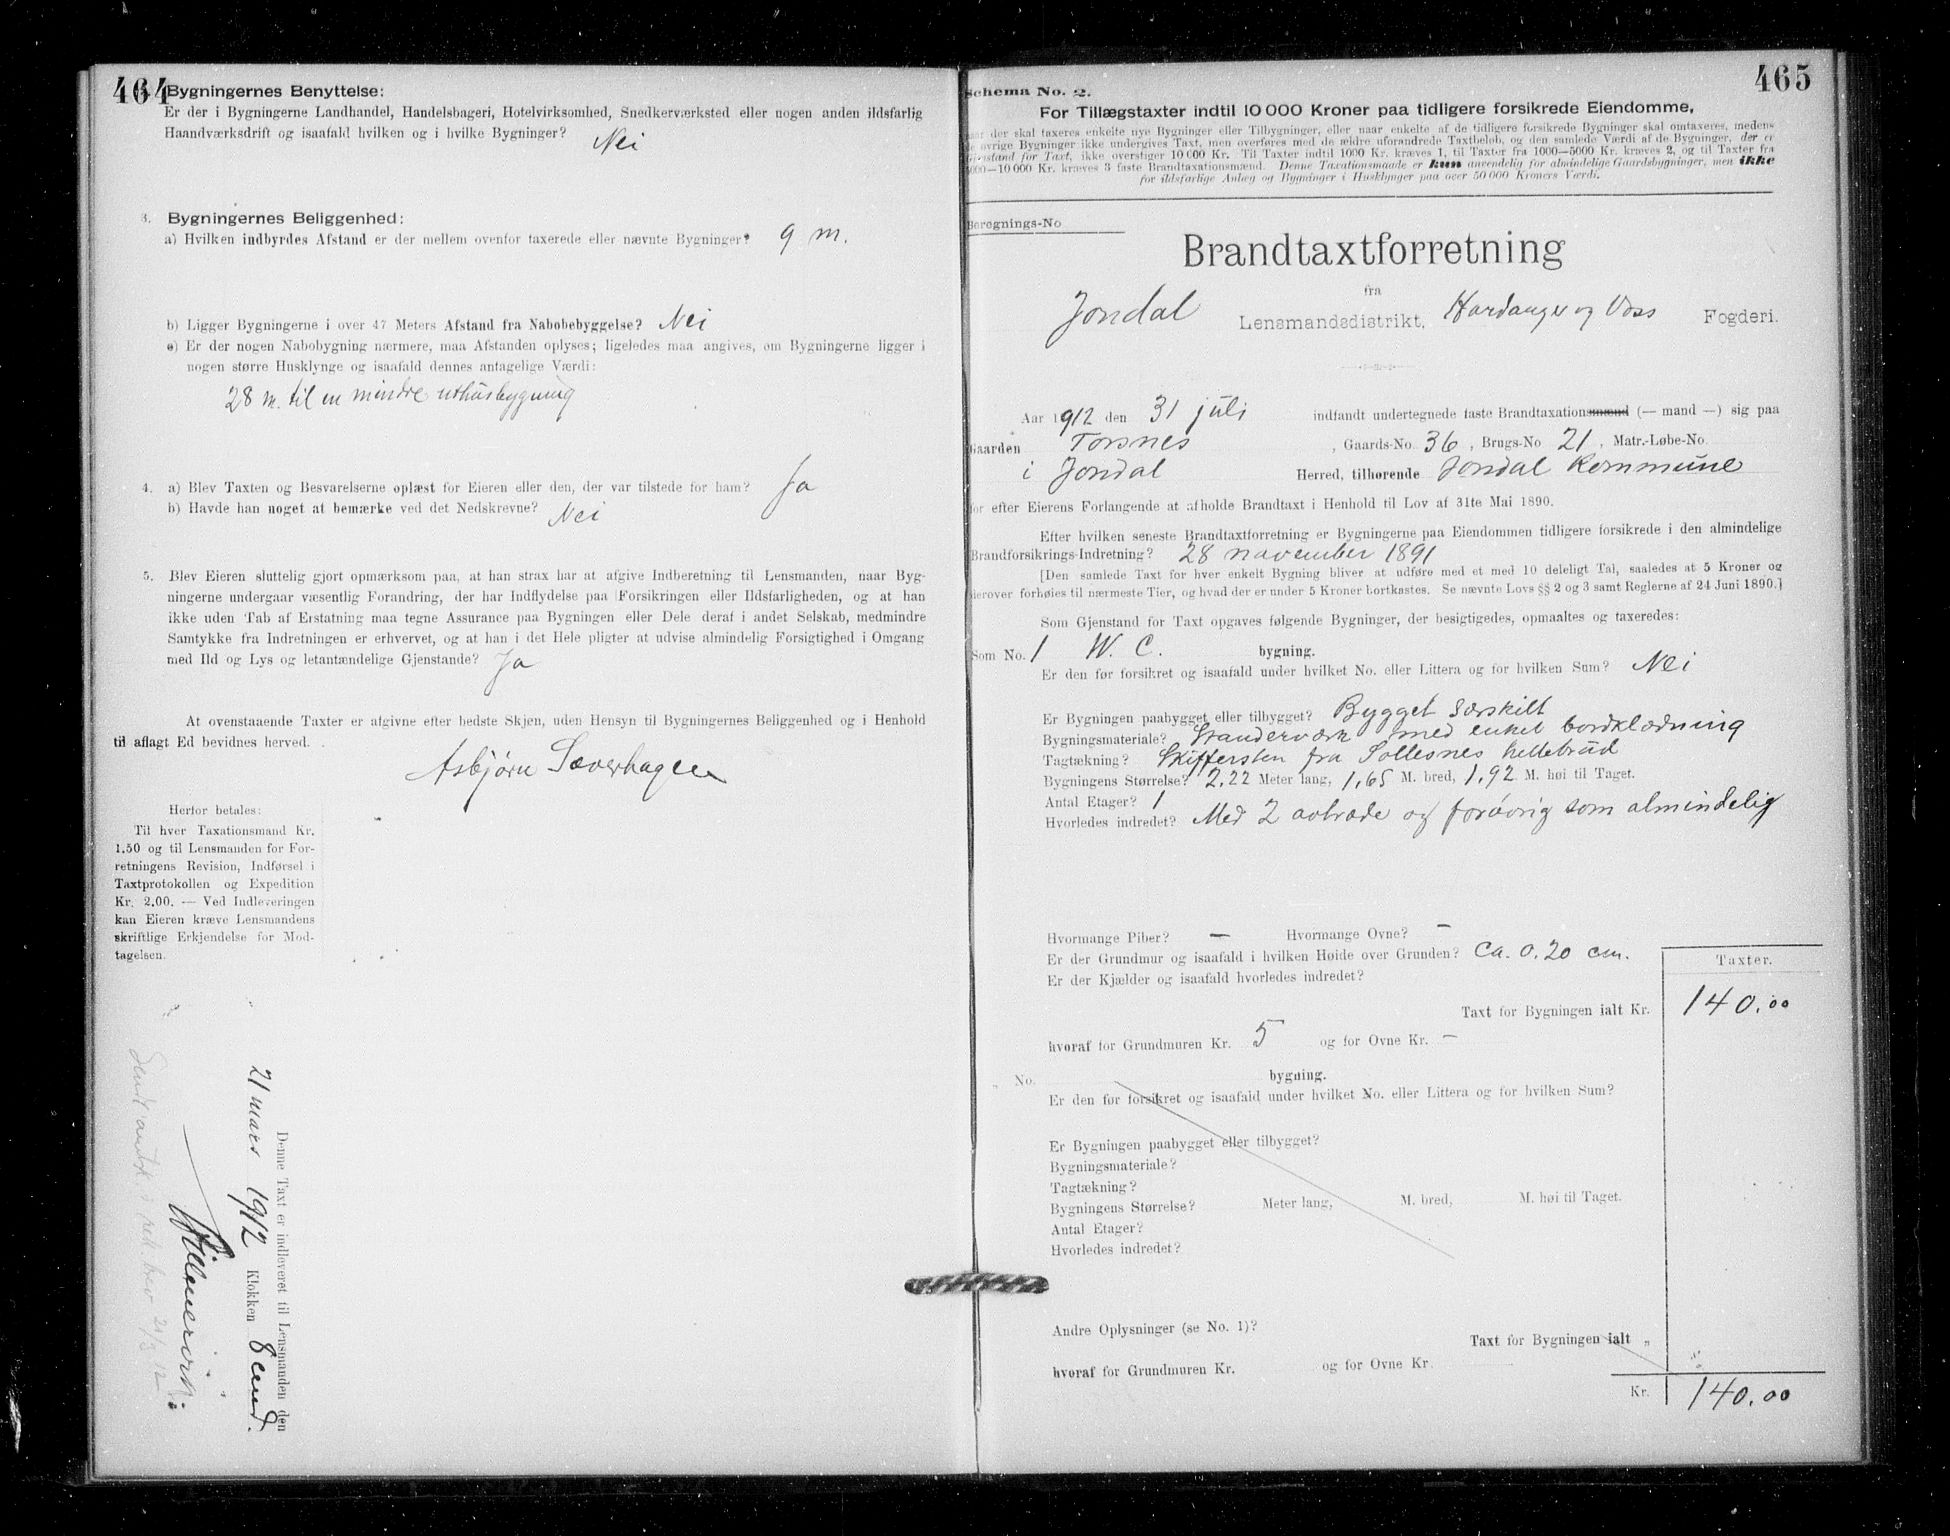 464
Bygningernes Benyttelse:
Er der i Bygningerne Landhandel, Handelsbageri, Hotelvirksomhed, Snedkerværksted eller nogen anden ildsfarlig
Haandværksdrift og isaafald hvilken og i hvilke Bygninger? Nei
3. Bygningernes Beliggenhed:
a) Hvilken indbyrdes Afstand er der mellem ovenfor taxerede eller nævnte Bygninger? 9 m.
b) Ligger Bygningerne i over 47 Meters Afstand fra Nabobebyggelse? Nei
c) Er der nogen Nabobygning nærmere, maa Afstanden oplyses; ligeledes maa angives, om Bygningerne ligger i
nogen større Husklynge og isaafald dennes antagelige Værdi:
28 m. til en mindre uthusbygning
4. a) Blev Taxten og Besvarelserne oplæst for Eieren eller den, der var tilstede for ham? Ja
b) Havde han noget at bemærke ved det Nedskrevne? Nei
5. Blev Eieren sluttelig gjort opmærksom paa, at han strax har at afgive Indberetning til Lensmanden, naar Byg-
ningerne undergaar væsentlig Forandring, der har Indflydelse paa Forsikringen eller Ildsfarligheden, og at han
ikke uden Tab af Erstatning maa tegne Assurance paa Bygningen eller Dele deraf i andet Selskab, medmindre
Samtykke fra Indretningen er erhvervet, og at han i det Hele pligter at udvise almindelig Forsigtighed i Omgang
med Ild og Lys og letantændelige Gjenstande? Ja
At ovenstaaende Taxter er afgivne efter bedste Skjøn, uden Hensyn til Bygningernes Beliggenhed og i Henhold
til aflagt Ed bevidnes herved.
Asbjørn Sæverhagen
Herfor betales:
Til hver Taxationsmand Kr.
1.50 og til Lensmanden for For-
retningens Revision, Indførsel i
Taxtprotokollen og Expedition
Kr. 2.00. — Ved Indleveringen
kan Eieren kræve Lensmandens
skriftlige Erkjendelse for Mod-
tagelsen.
Denne Taxt er indleveret til Lensmanden den
21 mars 1912 Klokken 8 emd.
465
Schema No. 2.
For Tillægstaxter indtil 10 000 Kroner paa tidligere forsikrede Eiendomme,
naar der skal taxeres enkelte nye Bygninger eller Tilbygninger, eller naar enkelte af de tidligere forsikrede Bygninger skal omtaxeres, medens
de øvrige Bygninger ikke undergives Taxt, men overføres med de ældre uforandrede Taxtbeløb, og den samlede Værdi af de Bygninger, der er
Gjenstand for Taxt, ikke overstiger 10 000 Kr. Til Taxter indtil 1000 Kr. kræves 1, til Taxter fra 1000—5000 Kr. kræves 2, og til Taxter fra
5000—10 000 Kr. kræves 3 faste Brandtaxationsmænd. Denne Taxationsmaade er kun anvendelig for almindelige Gaardsbygninger, men ikke
for ildsfarlige Anlæg og Bygninger i Husklynger paa over 50 000 Kroners Værdi.
Beregnings-No
Brandtaxtforretning
fra
Jondal Lensmandsdistrikt, Hardanger og Voss Fogderi.
Aar 1912 den 31 juli indfandt undertegnede faste Brandtaxationsmænd (— mand —) sig paa
Gaarden Torsnes, Gaards-No 36, Brugs-No 21, Matr.-Løbe-No.
i Jondal Herred, tilhørende Jondal Kommune
for efter Eierens Forlangende at afholde Brandtaxt i Henhold til Lov af 31te Mai 1890.
Efter hvilken seneste Brandtaxtforretning er Bygningerne paa Eiendommen tidligere forsikrede i den almindelige
Brandforsikrings-Indretning? 28 november 1891
[Den samlede Taxt for hver enkelt Bygning bliver at udføre med et med 10 deleligt Tal, saaledes at 5 Kroner og
derover forhøies til nærmeste Tier, og hvad der er under 5 Kroner bortkastes. Se nævnte Lovs §§ 2 og 3 samt Reglerne af 24 Juni 1890.]
Som Gjenstand for Taxt opgaves følgende Bygninger, der besigtigedes, opmaaltes og taxeredes:
Som No. 1 W. C. bygning.
Er den før forsikret og isaafald under hvilket No. eller Littera og for hvilken Sum? Nei
Er Bygningen paabygget eller tilbygget? Bygget særskilt
Bygningsmateriale? Standerværk med enkel bordklædning
Tagtækning? Skiffersten fra Sollesnes hellebrud
Bygningens Størrelse? 2.22 Meter lang, 1.65 M. bred, 1.92 M. høi til Taget.
Antal Etager? 1
Hvorledes indredet? Med 2 avtræde og forøvrig som almindelig
Hvormange Piber? — Hvormange Ovne? —
Er der Grundmur og isaafald i hvilken Høide over Grunden? Ca. 0.20 cm.
Er der Kjælder og isaafald hvorledes indredet?
Taxter.
Taxt for Bygningen ialt Kr. 140.00
hvoraf for Grundmuren Kr. 5 og for Ovne Kr. —
„ No. bygning.
Er den før forsikret og isaafald under hvilket No. eller Littera og for hvilken Sum?
Er Bygningen paabygget eller tilbygget?
Bygningsmateriale?
Tagtækning?
Bygningens Størrelse? Meter lang, M. bred, M. høi til Taget.
Antal Etager?
Hvorledes indredet?
Andre Oplysninger (se No. 1)?
Taxt for Bygningen ialt „
hvoraf for Grundmuren Kr. og for Ovne Kr.
Kr. 140.00